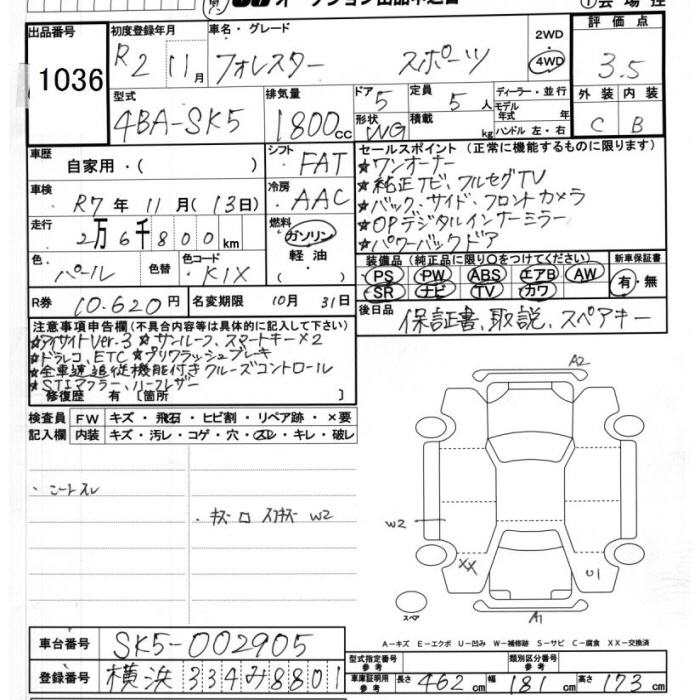 オークション出品申込書
会場控
出品番号
1036
初度登録年月
R2 11月
車名・グレード
フォレスター スポーツ
2WD
・
4WD
評価点
3.5
型式
4BA-SK5
排気量
1800cc
ドア
5
形状
WG
定員
5人
積載
kg
ディーラー・並行
モデル
年式 年
ハンドル 左・右
外装
C
内装
B
車歴
自家用・( )
シフト
FAT
車検
R7年11月(13日)
冷房
AAC
走行
2万6千800km
燃料
ガソリン
軽油
・( )
色
パール
色替
色コード
K1X
R券
10.620円
名変期限 10月 31日
セールスポイント (正常に機能するものに限ります)
★ワンオーナー
★純正ナビ、フルセグTV
★バック、サイド、フロントカメラ
★OPデジタルインナーミラー
★パワーバックドア
装備品 (純正品に限り○をつけてください)
PS PW ABS エアB AW
SR ナビ TV カワ
新車保証書
有・無
後日品
保証書、取説、スペアキー
注意事項申告欄(不具合内容等は具体的に記入して下さい)
★アイサイトVer.3 ★サンルーフ、スマートキー×2
★ドラレコ、ETC ★プリクラッシュブレーキ
★全車速追従機能付きクルーズコントロール
★STIマフラー、ハーフレザー
修復歴 有 [箇所 ]
検査員
記入欄
FW キズ・飛石・ヒビ割・リペア跡・×要
内装 キズ・汚レ・コゲ・穴・スレ・キレ・破レ
・ニートスレ
・キズ
W2
A2
W2
XX
U1
A1
スペア
A-キズ E-エクボ U-凹み W-補修跡 S-サビ C-腐食 XX-交換済
車台番号
SK5-002905
登録番号
横浜 334 み 8801
型式指定番号
参考
類別区分番号
参考
車庫証明用
参考
長さ 462 cm 幅 181 cm 高さ 173 cm